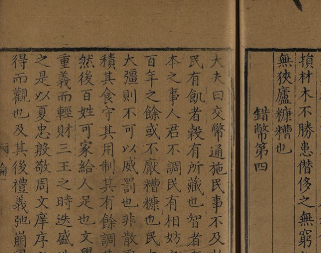 損材木不勝患僭侈之無窮
無狹廬糠糟也
錯幣第四
大夫曰交幣通施民事不及
民有飢者穀有所藏也智者
本之事人君不調民有相妨
百年之餘或不厭糟糠也民
大彊則不可以威罰也非散
積其食守其用制其有餘調
然後百姓可家給人足也文學
重義而輕財三王之時迭盛
之是以夏忠殷敬周文庠序
得而觀也及其後禮義弛崩